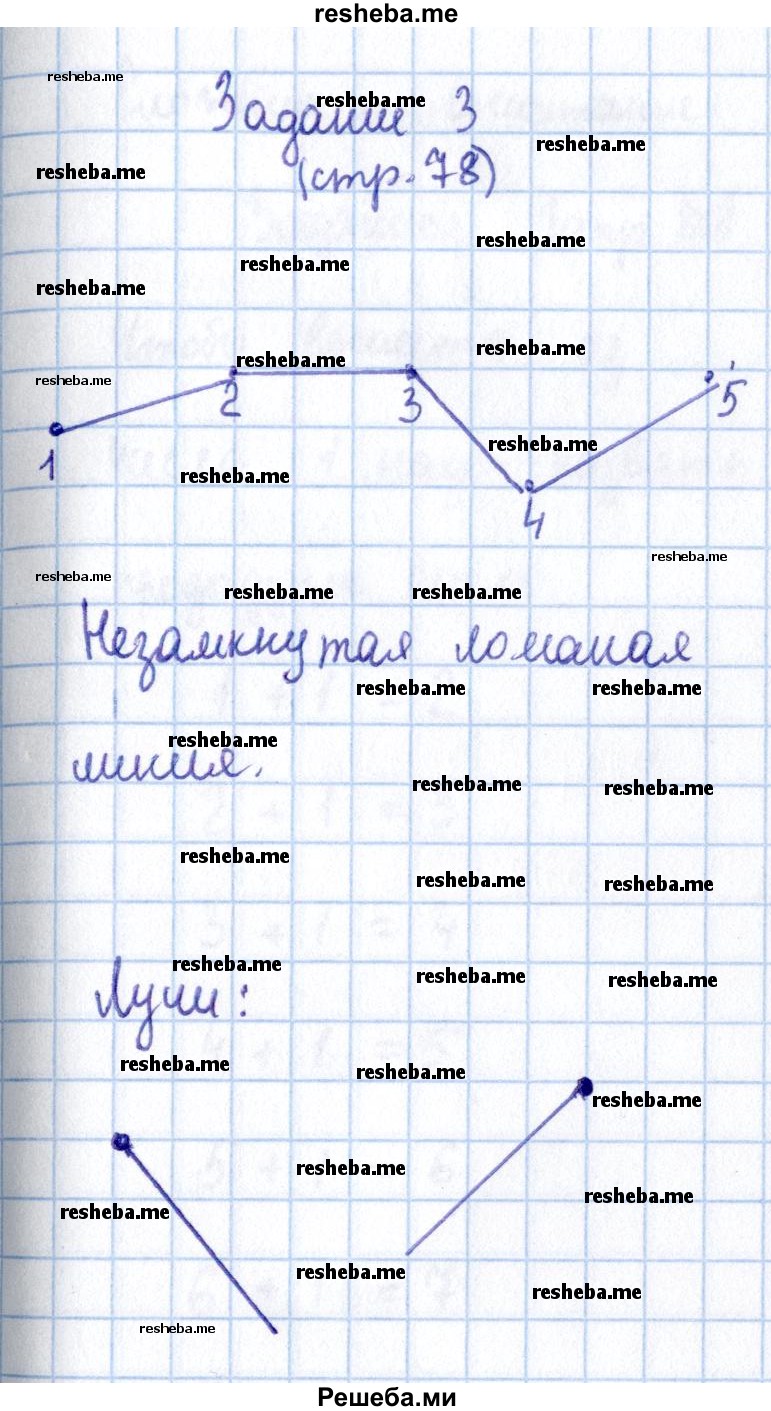 resheba.me
resheba.me
Задание 3
resheba.me
resheba.me
resheba.me
(стр. 78)
resheba.me
resheba.me
resheba.me
resheba.me
resheba.me
resheba.me
2
3
5
resheba.me
1
resheba.me
4
resheba.me
resheba.me
resheba.me
resheba.me
Незамкнутая ломаная
resheba.me
resheba.me
resheba.me
линия.
resheba.me
resheba.me
resheba.me
resheba.me
resheba.me
resheba.me
resheba.me
resheba.me
Лучи:
resheba.me
resheba.me
resheba.me
resheba.me
resheba.me
resheba.me
resheba.me
resheba.me
resheba.me
Решеба.ми